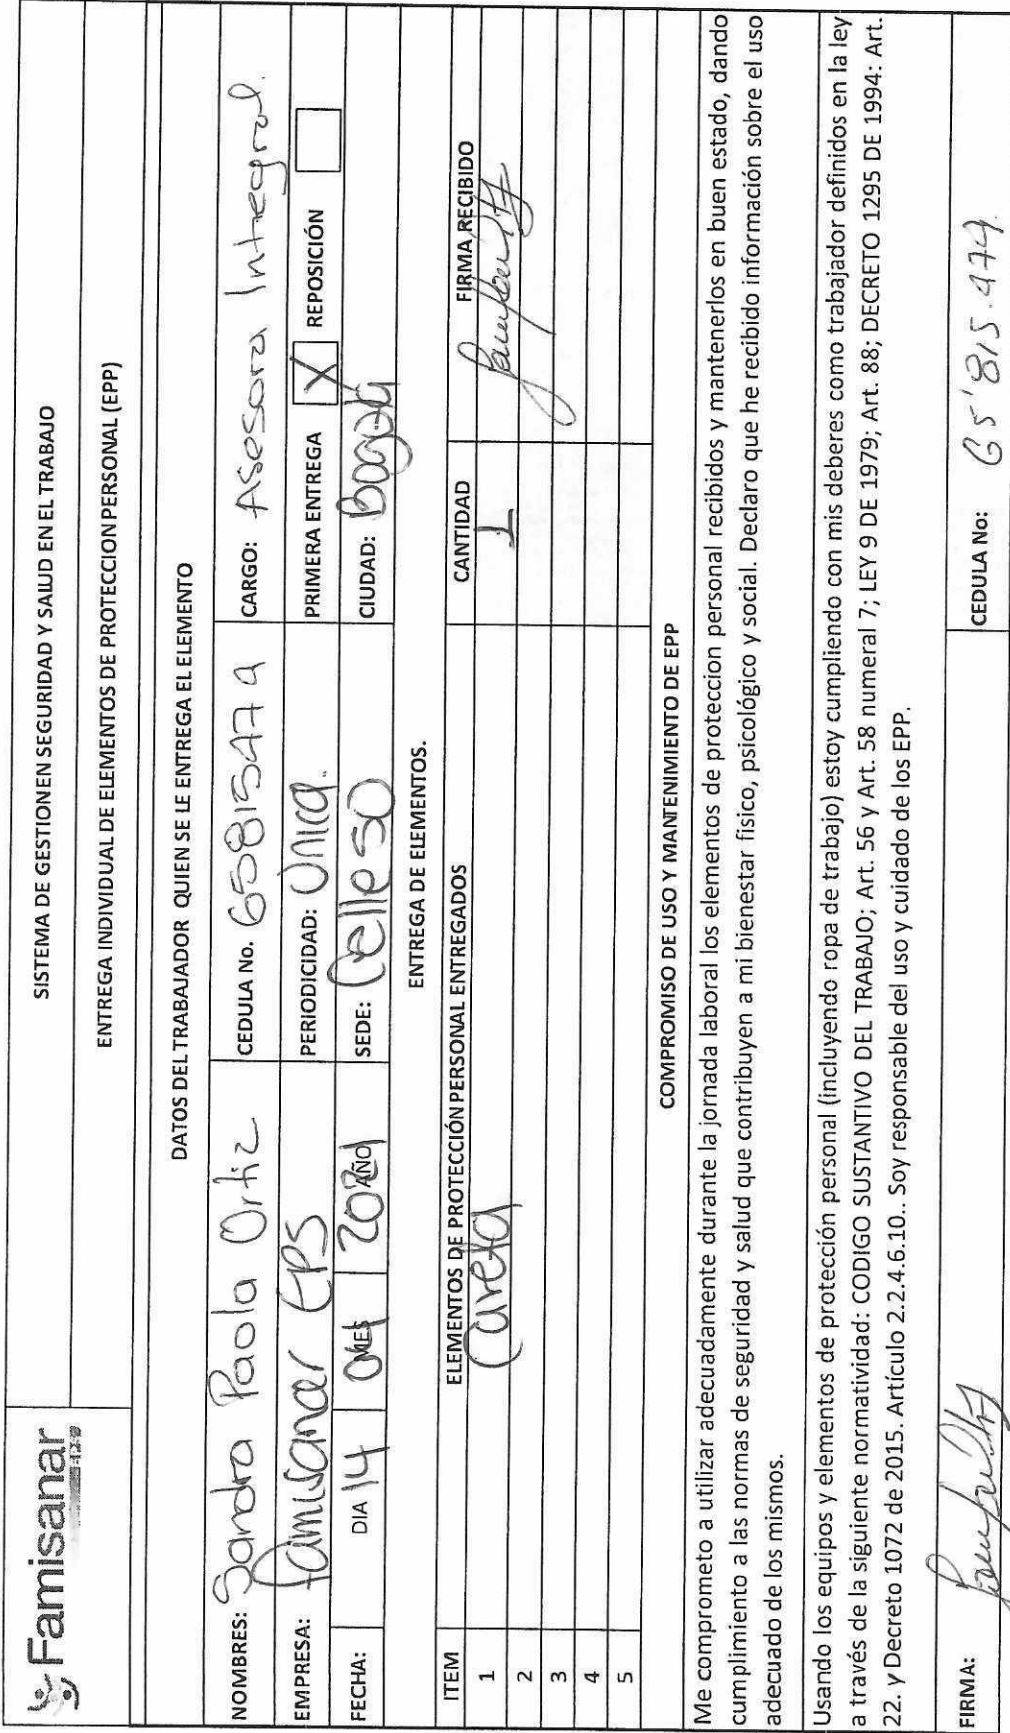 Famisanar
SISTEMA DE GESTIONEN SEGURIDAD Y SALUD EN EL TRABAJO
ENTREGA INDIVIDUAL DE ELEMENTOS DE PROTECCION PERSONAL (EPP)
DATOS DEL TRABAJADOR QUIEN SE LE ENTREGA EL ELEMENTO
NOMBRES: Sandra Paola Ortiz CEDULA No. 65815474 CARGO: Asesora Integral.
EMPRESA: famisanar EPS PERIODICIDAD: Unica. PRIMERA ENTREGA X REPOSICIÓN
FECHA: DIA 14 MES 04 AÑO 2021 SEDE: Calle 50 CIUDAD: Bogotá
ENTREGA DE ELEMENTOS.
ITEM ELEMENTOS DE PROTECCIÓN PERSONAL ENTREGADOS CANTIDAD FIRMA RECIBIDO
1 Careta 1
2
3
4
5
COMPROMISO DE USO Y MANTENIMIENTO DE EPP
Me comprometo a utilizar adecuadamente durante la jornada laboral los elementos de proteccion personal recibidos y mantenerlos en buen estado, dando
cumplimiento a las normas de seguridad y salud que contribuyen a mi bienestar fisico, psicológico y social. Declaro que he recibido información sobre el uso
adecuado de los mismos.
Usando los equipos y elementos de protección personal (incluyendo ropa de trabajo) estoy cumpliendo con mis deberes como trabajador definidos en la ley
a través de la siguiente normatividad: CODIGO SUSTANTIVO DEL TRABAJO; Art. 56 y Art. 58 numeral 7; LEY 9 DE 1979; Art. 88; DECRETO 1295 DE 1994: Art.
22. y Decreto 1072 de 2015. Artículo 2.2.4.6.10.. Soy responsable del uso y cuidado de los EPP.
FIRMA: CEDULA No: 65'815.474.